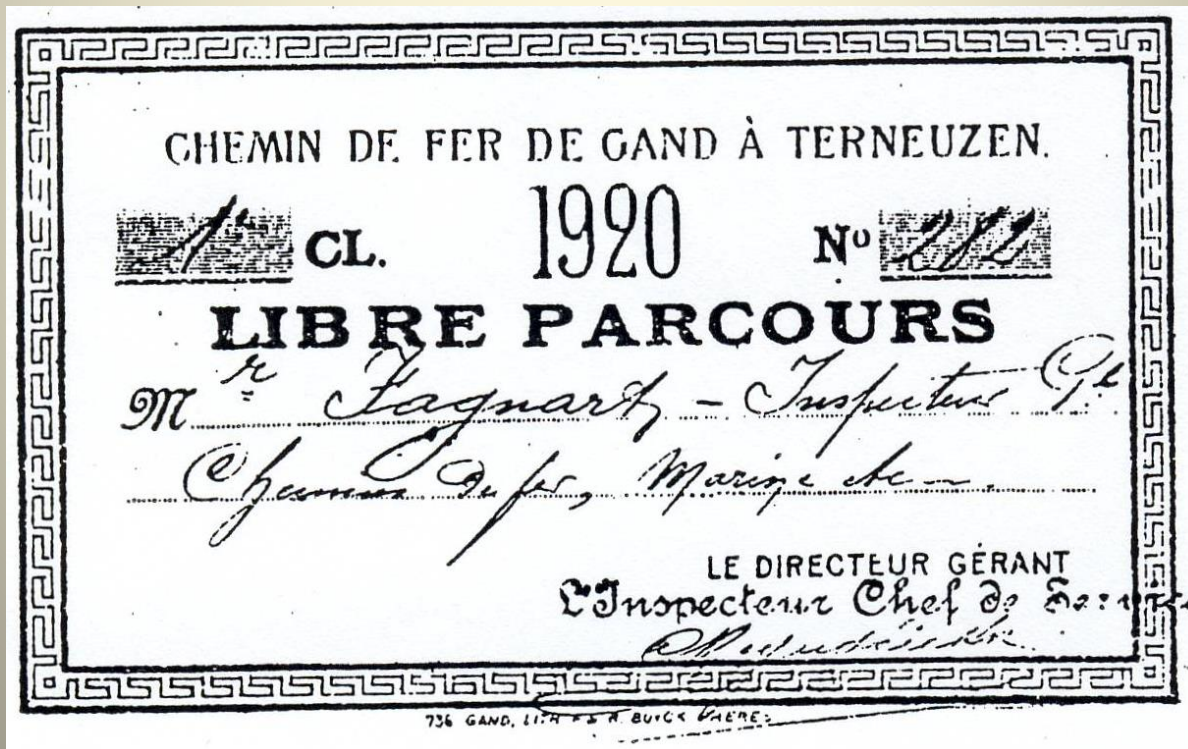 CHEMIN DE FER DE GAND À TERNEUZEN.
1e CL. 1920 No 282
LIBRE PARCOURS
Mr Fagnart - Inspecteur Gl
Chemins de fer, Marine etc
LE DIRECTEUR GÉRANT
L'Inspecteur Chef de Service
736 GAND, LITH